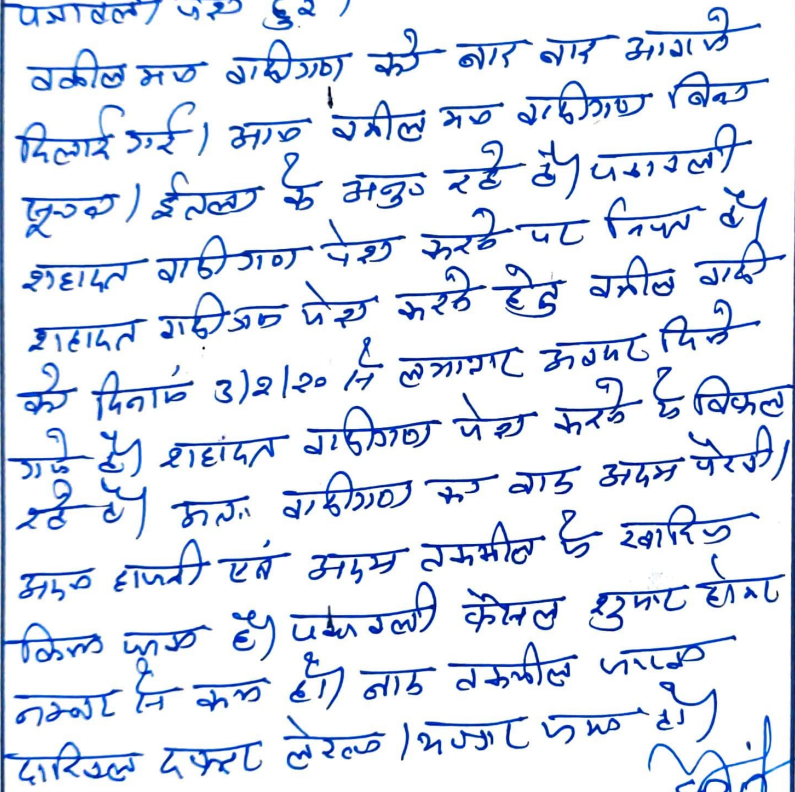 पत्रावली पेश हुई।
वकील मय वादीगण को बार बार आवाजें
दिलाई गई। आज वकील मय वादीगण बिना
सूचना / ईतला के अनु० रहे है। पत्रावली
शहादत वादीगण पेश करने पर नियत है।
शहादत वादीगण पेश करने हेतु वकील वादी
को दिनांक 3/2/20 से लगातार अवसर दिये
गये है। शहादत वादीगण पेश करने में विफल
रहे है। अतः वादीगण का वाद अदम पैरवी/
अदम हाजरी एवं अदम तकमील में खारिज
किया जाता है। पत्रावली फैसल शुमार होकर
नम्बर से कम हो। बाद तकमील जाब्ता
दाखिल दफ्तर